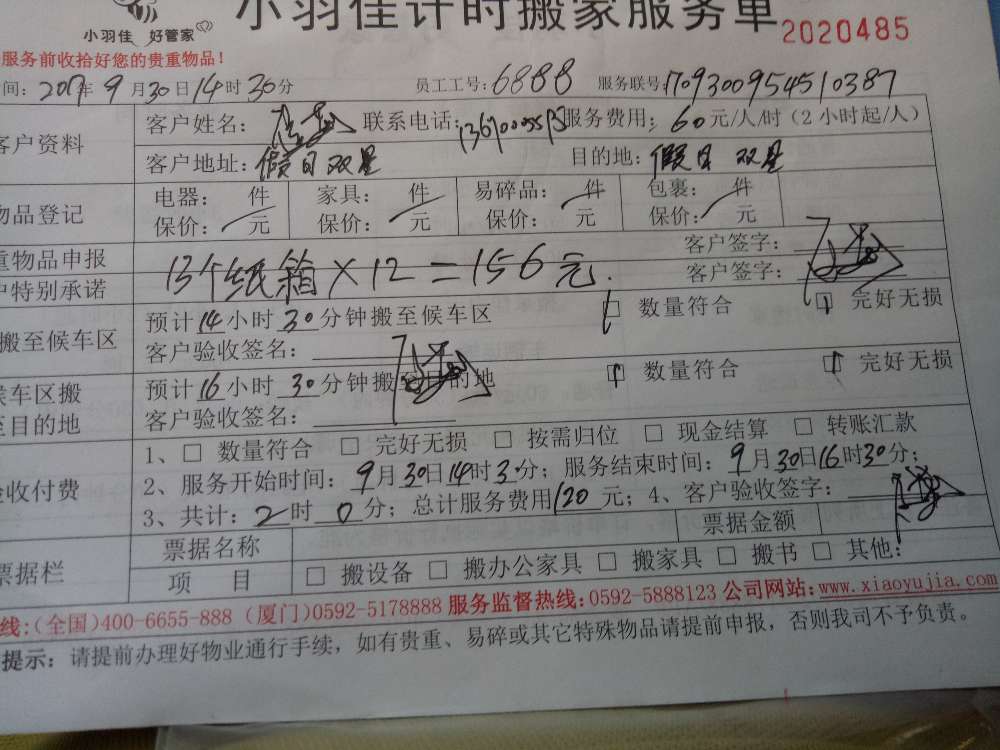 小羽佳计时搬家服务单
小羽佳 好管家
2020485
服务前收拾好您的贵重物品!
间: 2017年9月30日14时30分 员工工号: 6888 服务联号: 1709300954510387
客户资料 客户姓名: 联系电话: 服务费用: 60元/人/时(2小时起/人)
客户地址: 假日双星 目的地: 假日双星
物品登记 电器: 件 家具: 件 易碎品: 件 包裹: 件
保价: 元 保价: 元 保价: 元 保价: 元
重物品申报 客户签字:
户特别承诺 13个纸箱×12=156元. 客户签字:
搬至候车区 预计14小时30分钟搬至候车区 □ 数量符合 □ 完好无损
客户验收签名:
候车区搬 预计16小时30分钟搬至目的地 □ 数量符合 □ 完好无损
至目的地 客户验收签名:
验收付费 1、□ 数量符合 □ 完好无损 □ 按需归位 □ 现金结算 □ 转账汇款
2、服务开始时间: 9月30日14时30分; 服务结束时间: 9月30日16时30分;
3、共计: 2时0分; 总计服务费用120元; 4、客户验收签字:
票据栏 票据名称 票据金额
项 目 □ 搬设备 □ 搬办公家具 □ 搬家具 □ 搬书 □ 其他:
线:(全国)400-6655-888 (厦门)0592-5178888 服务监督热线:0592-5888123 公司网站:www.xiaoyujia.com
提示: 请提前办理好物业通行手续, 如有贵重、易碎或其它特殊物品请提前申报, 否则我司不予负责。